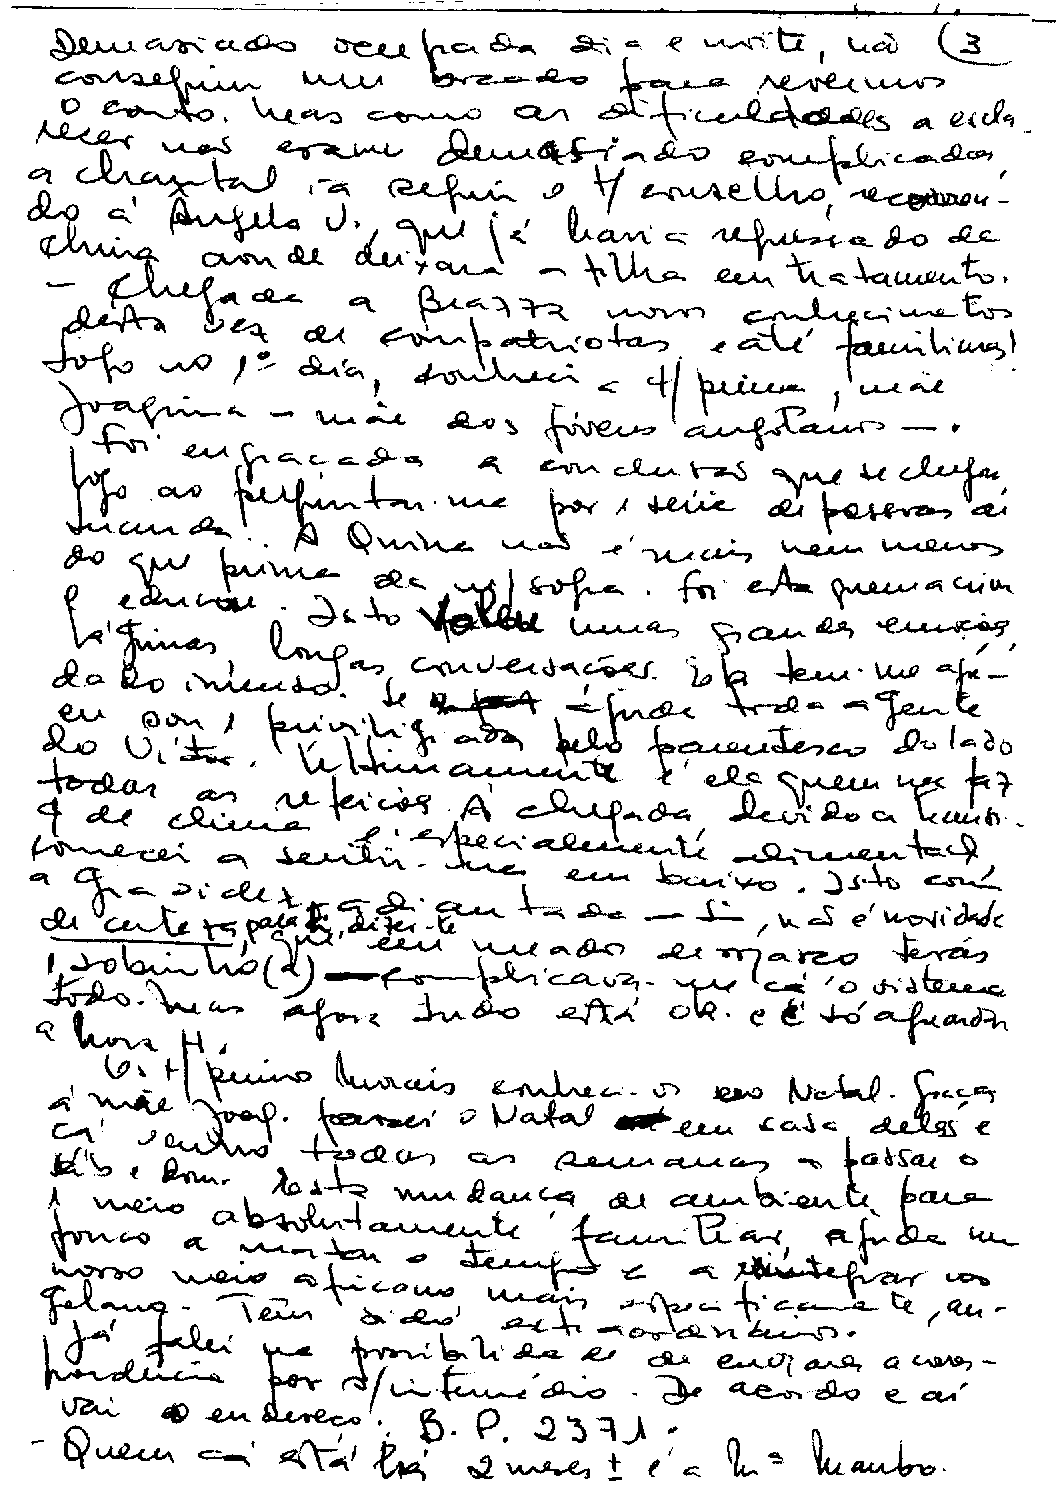 Demasiado ocupada dia e noite, não (3
conseguiu um bocado para revermos
o conto. Mas como as dificuldades a escla-
recer não eram demasiado complicadas,
a Chantal ia seguir o t/ conselho, recorren-
do à Ângela V., que já havia regressado da
China aonde deixara a filha em tratamento.
- Chegada a Brazza novos conhecimentos
desta vez de compatriotas e até familiares!
Logo no 1º dia, conheci a t/ prima, mãe
Joaquina - mãe dos jovens angolanos -.
Foi engraçada a conclusão que se chegou
logo ao perguntar-me por 1 série de pessoas de
Luanda.. A Quina não é mais nem menos
do que prima da m/ sogra. Foi esta quem a criou
e educou. Isto valeu umas grandes emoções,
lágrimas, longas conversações. Ela tem-me aju-
dado imenso. Se ajuda toda a gente
eu sou 1 privilegiada pelo parentesco do lado
do Vítor. Ultimamente é ela quem me faz
todas as refeições. À chegada, devido a mudança
de clima e especialmente alimentar,
comecei a sentir-me em baixo. Isto com
a gravidez adiantada - Si, não é novidade
de certeza para ti, dizer-te que em meado de março terás
1 sobrinho(a) - complicava-me cá o sistema
todo. Mas agora tudo está OK. e é só aguardar
a hora H.
Os t/ primos Morais conheci-os no Natal. Graças
à mãe Joaq. passei o Natal em casa deles e
cá venho todas as semanas a passar o
sáb e dom. Esta mudança de ambiente, para
1 meio absolutamente familiar, ajuda um
pouco a matar o tempo e a reintegrar no
nosso meio africano mais especificamente, an-
golano. Têm sido extraordinários.
Já falei na possibilidade de enviares a corres-
pondência por s/ intermédio. De acordo e aí
vai o endereço: B.P. 2371.
- Quem cá está há 2 meses ± é a Mª Mambo.